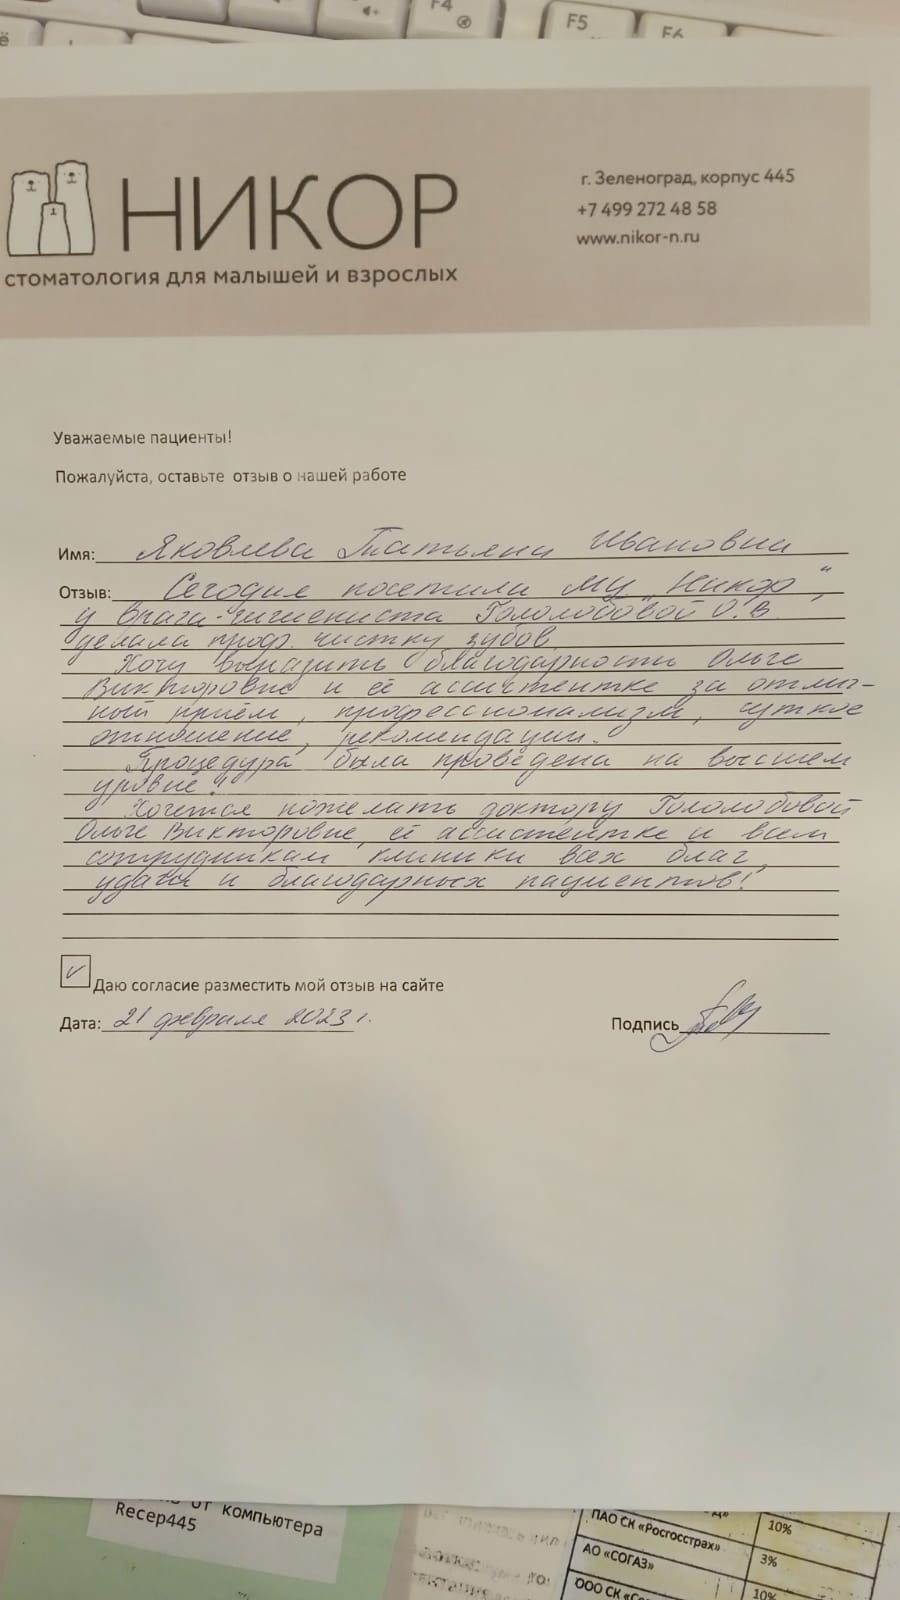 F4
F5
F6
ё
НИКОР
стоматология для малышей и взрослых
г. Зеленоград, корпус 445
+7 499 272 48 58
www.nikor-n.ru
Уважаемые пациенты!
Пожалуйста, оставьте отзыв о нашей работе
Имя: Яковлева Татьяна Ивановна
Отзыв: Сегодня посетила МЦ „Никор“,
у врача-гигиениста Гололобовой О.В.
делала проф. чистку зубов.
Хочу выразить благодарность Ольге
Викторовне и её ассистентке за отлич-
ный приём, профессионализм, чуткое
отношение, рекомендации.
Процедура была проведена на высшем
уровне!
Хочется пожелать доктору Гололобовой
Ольге Викторовне, её ассистентке и всем
сотрудникам клиники всех благ,
удачи и благодарных пациентов!
Даю согласие разместить мой отзыв на сайте
Дата: 21 февраля 2023 г.
Подпись
от компьютера
Recep445
ПАО СК «Росгосстрах» 10%
АО «СОГАЗ» 3%
ООО СК 10%